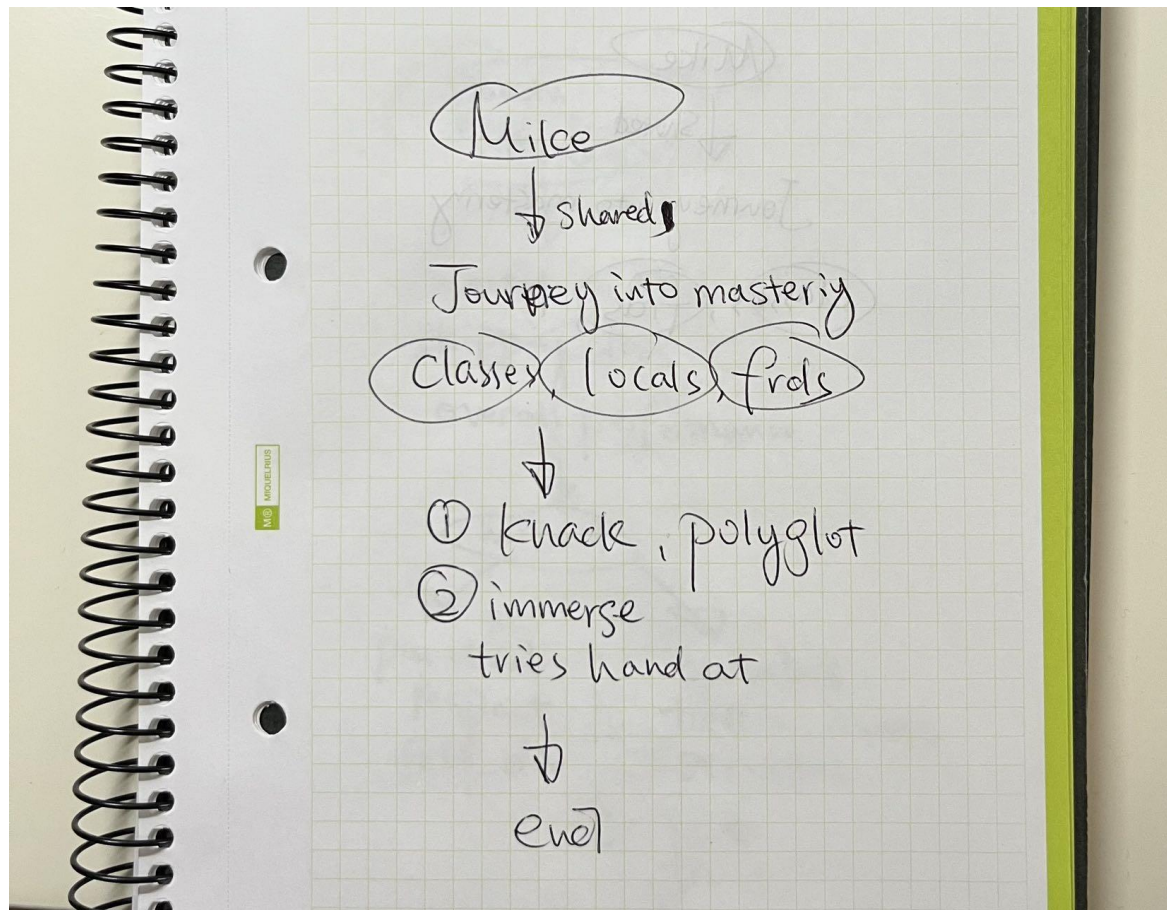 Mike
shared
Journey into masteriy
classes, locals, frds
① knack, polyglot
② immerse
tries hand at
end
M® MIQUELRIUS